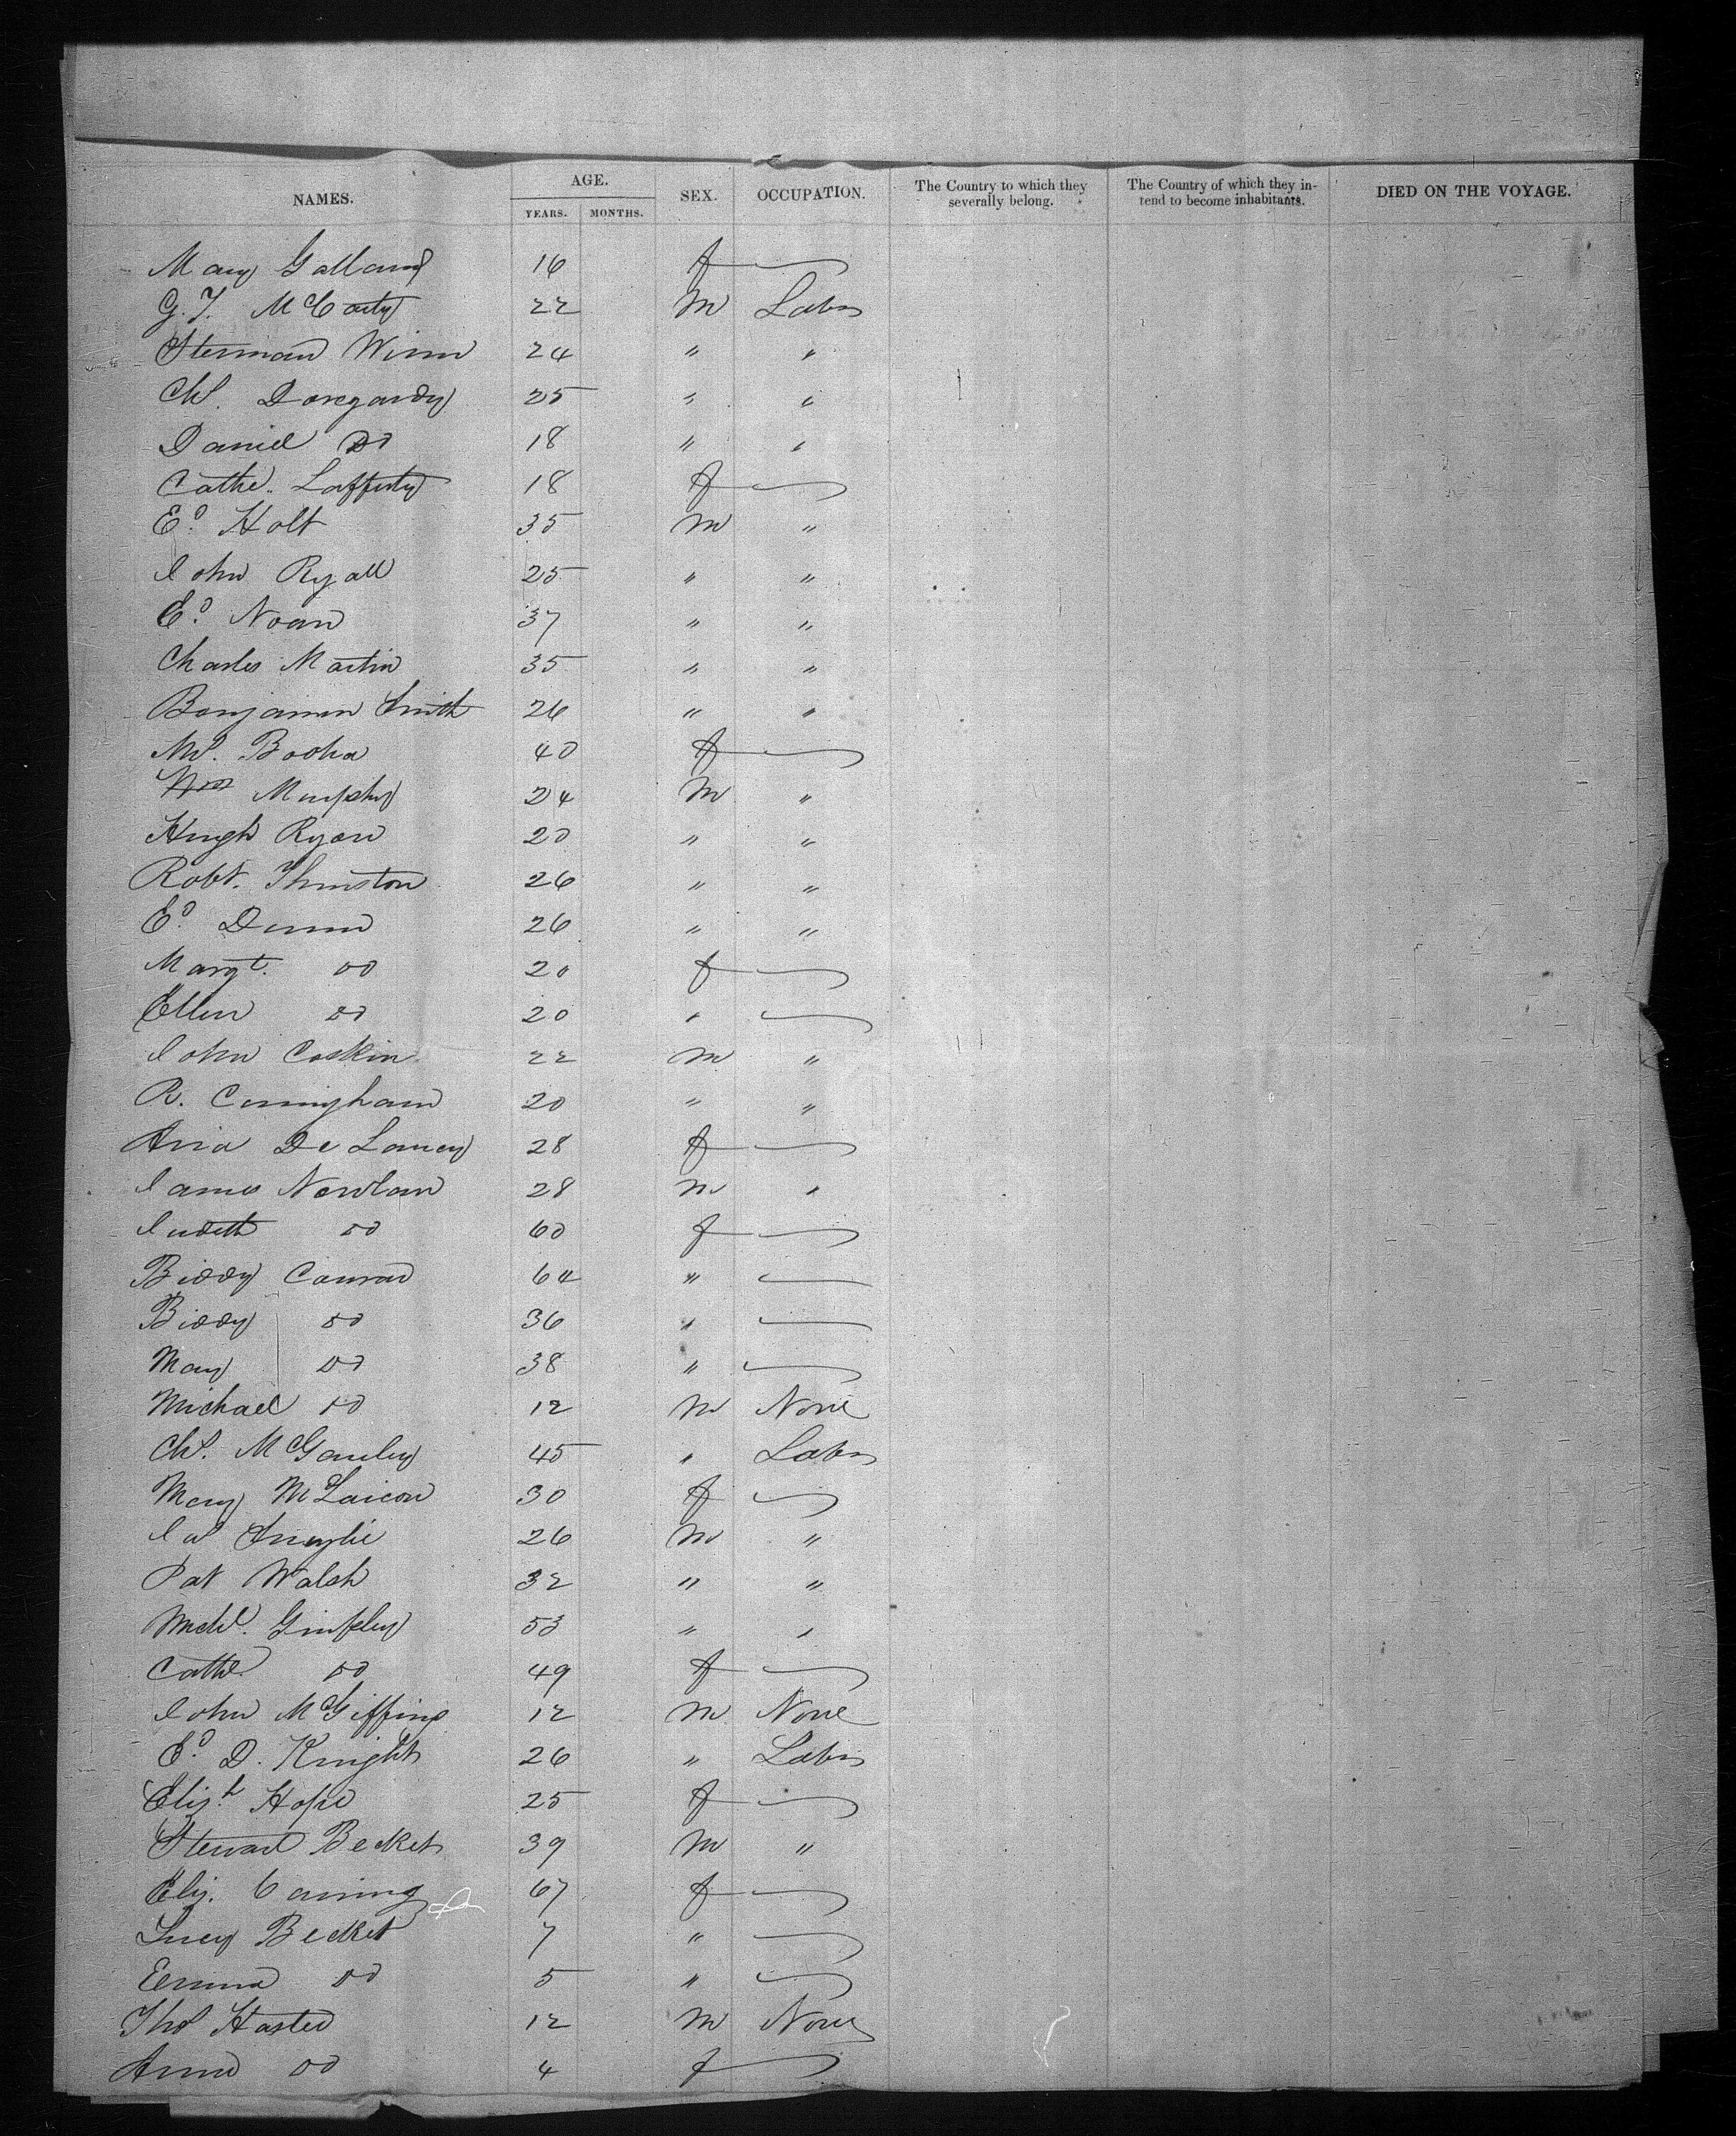 NAMES. AGE. SEX. OCCUPATION. The Country to which they severally belong. The Country of which they intend to become inhabitants. DIED ON THE VOYAGE.
YEARS. MONTHS.
Mary Galland 16 f
G. T. McCarty 22 M Labr
Sterman Winn 24 " "
Chs. Doregardy 25 " "
Daniel Do 18 " "
Cathe. Lafferty 18 f
Ed. Holt 35 M "
John Ryall 25 " "
Ed. Noan 37 " "
Charles Martin 35 " "
Benjamin Smith 26 " "
Ms. Booha 40 f
Murphy 24 M "
Hugh Ryan 20 " "
Robt. Thurston 26 " "
Ed. Dunn 26 " "
Margt. Do 20 f
Ellen Do 20 "
John Coskin 22 M "
R. Cuningham 20 " "
Ana De Lancy 28 f
James Newlan 28 M "
Judeth Do 60 f
Biddy Conran 64 "
Biddy Do 36 "
Mary Do 38 "
Michael Do 12 M None
Chs. McGauley 45 " Labr
Mary McLaicon 30 f
Jas 26 M "
Pat Walsh 32 " "
Michl. Gimpley 53 " "
Cathe. Do 49 f
John McGiffing 12 M None
Ed. D. Knight 26 " Labr
Elizh. Hope 25 f
Steward Becket 39 M "
Eliz. Caning 67 f
Lucy Becket 7 "
Emma Do 5 "
Thos Hasted 12 M None
Anna Do 4 f